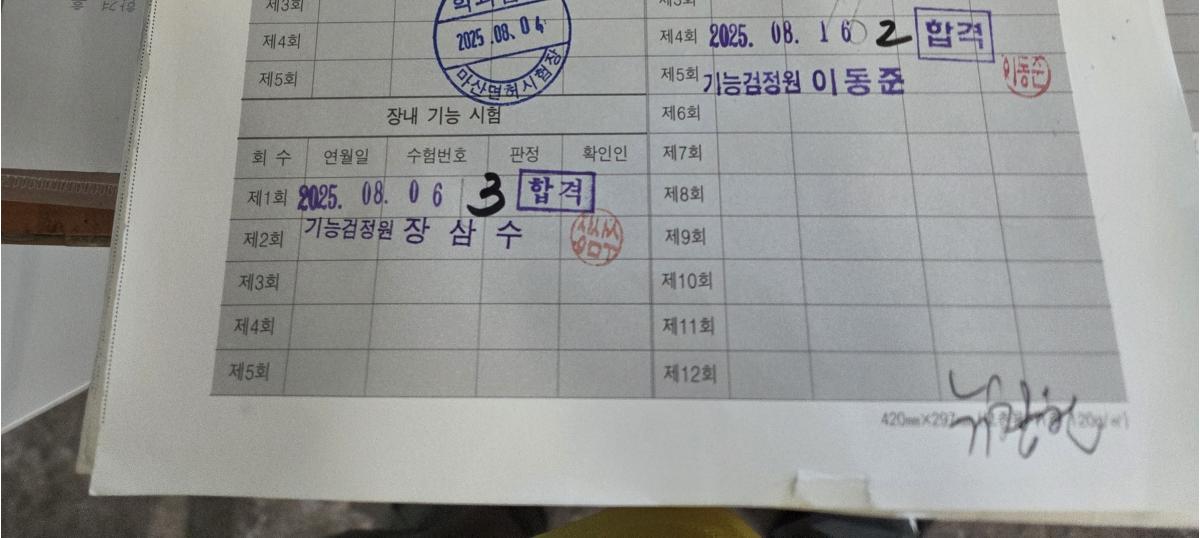 제3회
제4회
2025.08.04
제5회
마산면허시험장
장내 기능 시험
회 수 연월일 수험번호 판정 확인인
제1회 2025. 08. 06 3 합격
제2회 기능검정원 장 삼 수
제3회
제4회
제5회
제4회 2025. 08. 16 2 합격
제5회 기능검정원 이동준 이동준
제6회
제7회
제8회
제9회
제10회
제11회
제12회
420㎜×297